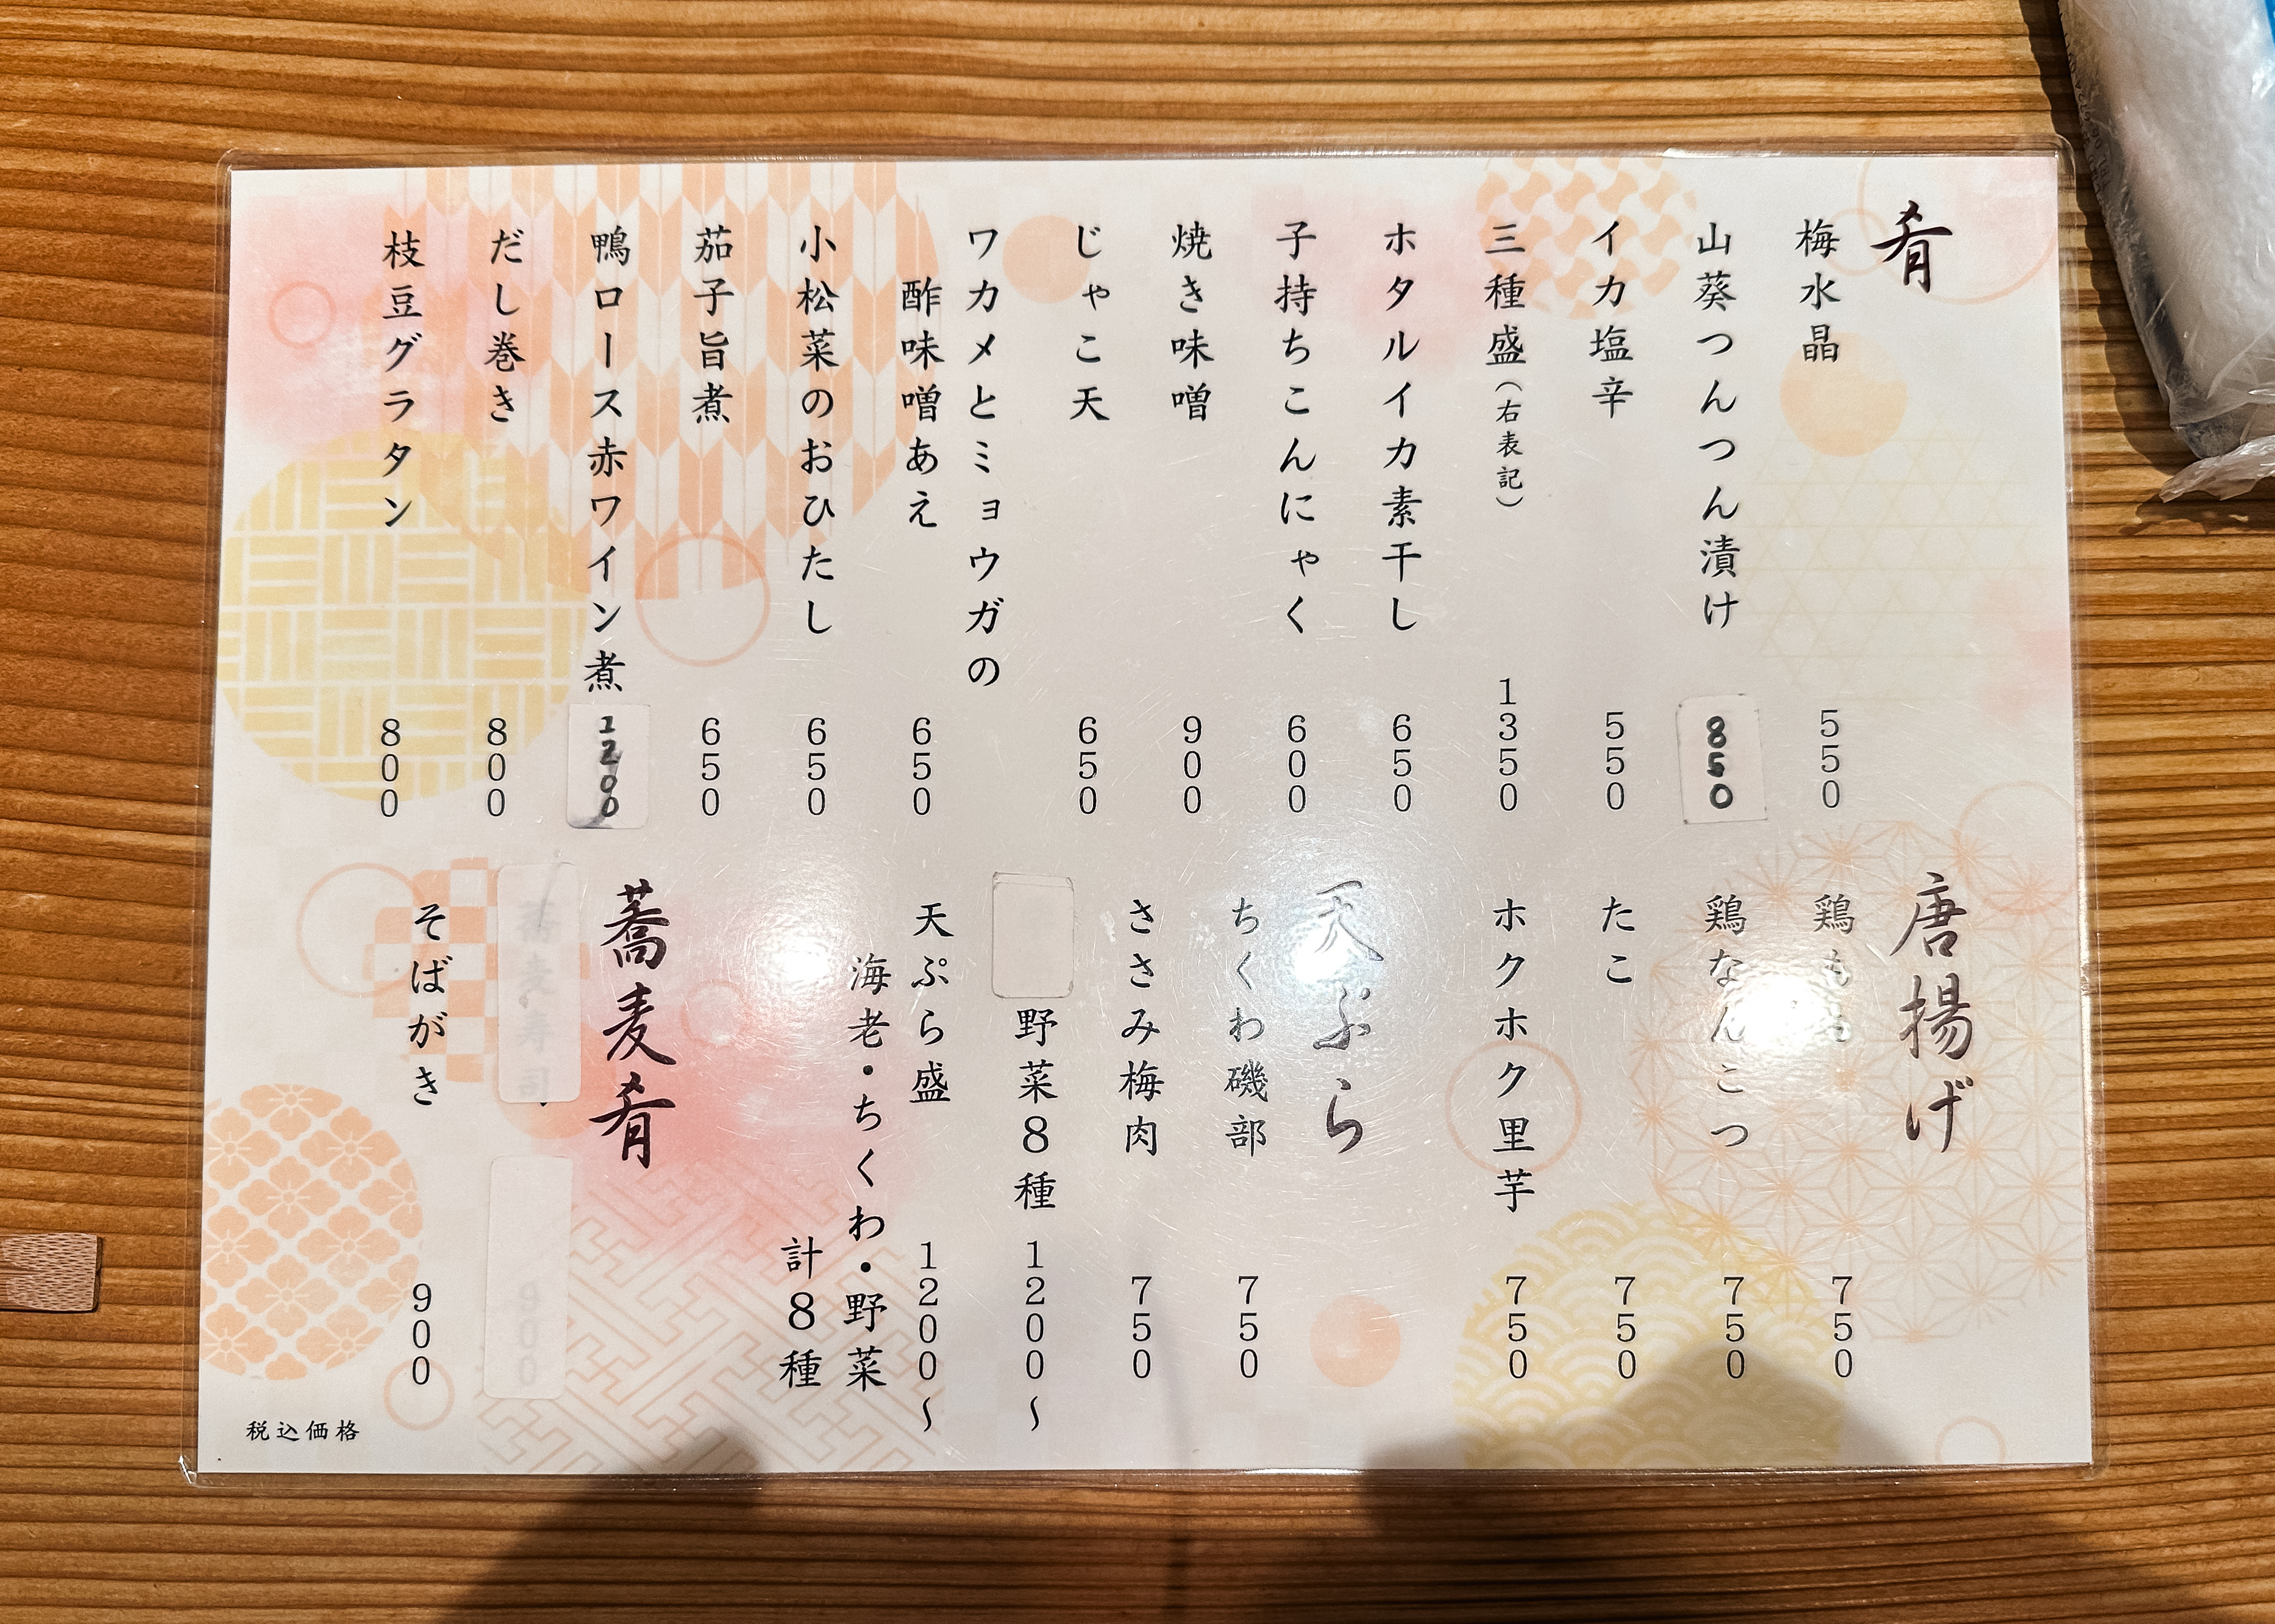 肴
梅水晶 550
山葵つんつん漬け 850
イカ塩辛 550
三種盛（右表記） 1350
ホタルイカ素干し 650
子持ちこんにゃく 600
焼き味噌 900
じゃこ天 650
ワカメとミョウガの
酢味噌あえ 650
小松菜のおひたし 650
茄子旨煮 650
鴨ロース赤ワイン煮 1200
だし巻き 800
枝豆グラタン 800
唐揚げ
鶏もも 750
鶏なんこつ 750
たこ 750
ホクホク里芋 750
天ぷら
ちくわ磯部 750
ささみ梅肉 750
野菜8種 1200〜
天ぷら盛 1200〜
海老・ちくわ・野菜
計8種
蕎麦肴
そばがき 900
税込価格